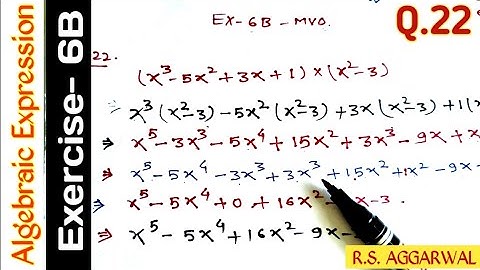 Algebraic Expression
Exercise- 6B
EX-6B-MVO.
Q.22
22.
(x³ - 5x² + 3x + 1) × (x² - 3)
x³(x²-3) - 5x²(x²-3) + 3x(x²-3) + 1(
⇒ x⁵ - 3x³ - 5x⁴ + 15x² + 3x³ - 9x + x
⇒ x⁵ - 5x⁴ - 3x³ + 3x³ + 15x² + 1x² - 9x -
⇒ x⁵ - 5x⁴ + 0 + 16x² - x - 3 .
⇒ x⁵ - 5x⁴ + 16x² - 9x -
R.S. AGGARWAL